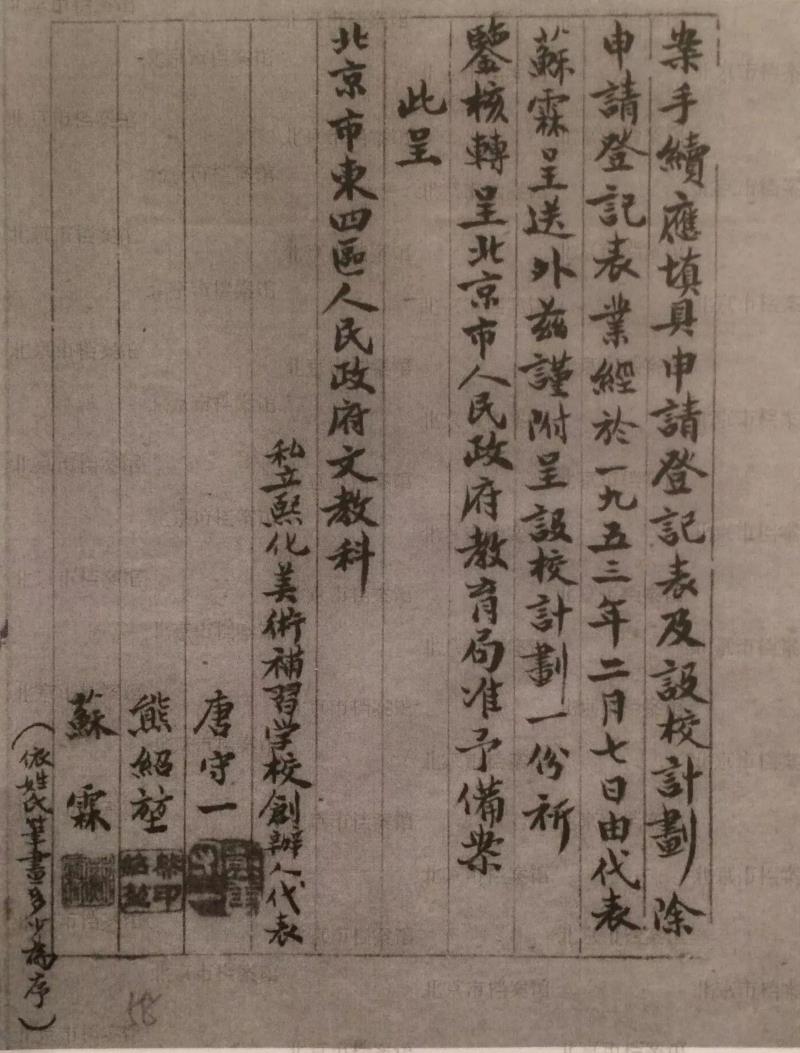 案手續應填具申請登記表及設校計劃除
申請登記表業經於一九五三年二月七日由代表
蘇霖呈送外茲謹附呈設校計劃一份祈
鑒核轉呈北京市人民政府教育局准予備案
此呈
北京市東四區人民政府文教科
私立熙化美術補習学校創辦人代表
唐守一
熊紹堃
蘇霖
（依姓氏筆畫多少為序）
58
北京市档案馆